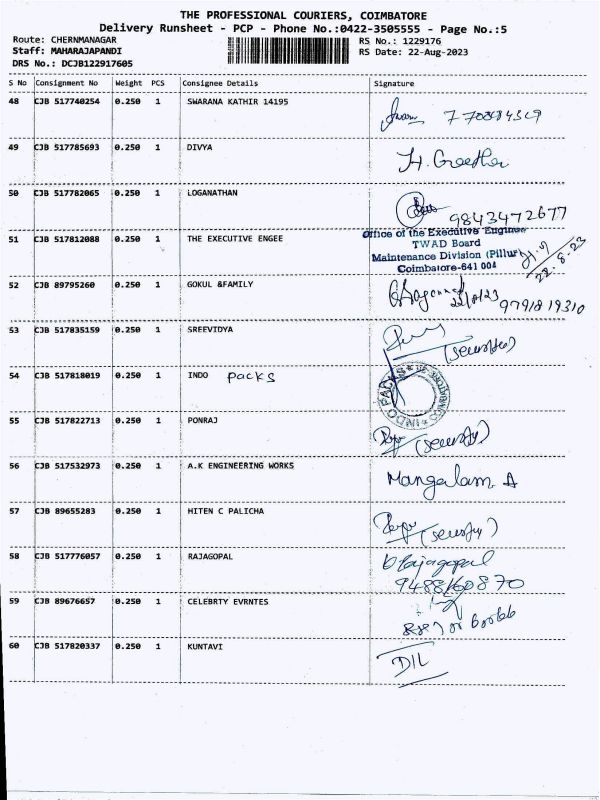 THE PROFESSIONAL COURIERS, COIMBATORE
Delivery Runsheet - PCP - Phone No.:0422-3505555 - Page No.:5
Route: CHERNMANAGAR RS No.: 1229176
Staff: MAHARAJAPANDI RS Date: 22-Aug-2023
DRS No.: DCJB122917605
S No Consignment No Weight PCS Consignee Details Signature
48 CJB 517740254 0.250 1 SWARANA KATHIR 14195
49 CJB 517785693 0.250 1 DIVYA
50 CJB 517782065 0.250 1 LOGANATHAN 9843472677
51 CJB 517812088 0.250 1 THE EXECUTIVE ENGEE
Office of the Executive Engineer
TWAD Board
Maintenance Division (Pillur)
Coimbatore-641 004
22.8.23
52 CJB 89795260 0.250 1 GOKUL &FAMILY 22/8/23 9791819310
53 CJB 517835159 0.250 1 SREEVIDYA (security)
54 CJB 517818019 0.250 1 INDO PACKS
INDO PACKS * COIMBATORE *
55 CJB 517822713 0.250 1 PONRAJ (security)
56 CJB 517532973 0.250 1 A.K ENGINEERING WORKS Mangalam A
57 CJB 89655283 0.250 1 HITEN C PALICHA (security)
58 CJB 517776057 0.250 1 RAJAGOPAL Rajagopal
9488160870
59 CJB 89676657 0.250 1 CELEBRTY EVRNTES
60 CJB 517820337 0.250 1 KUNTAVI DIL